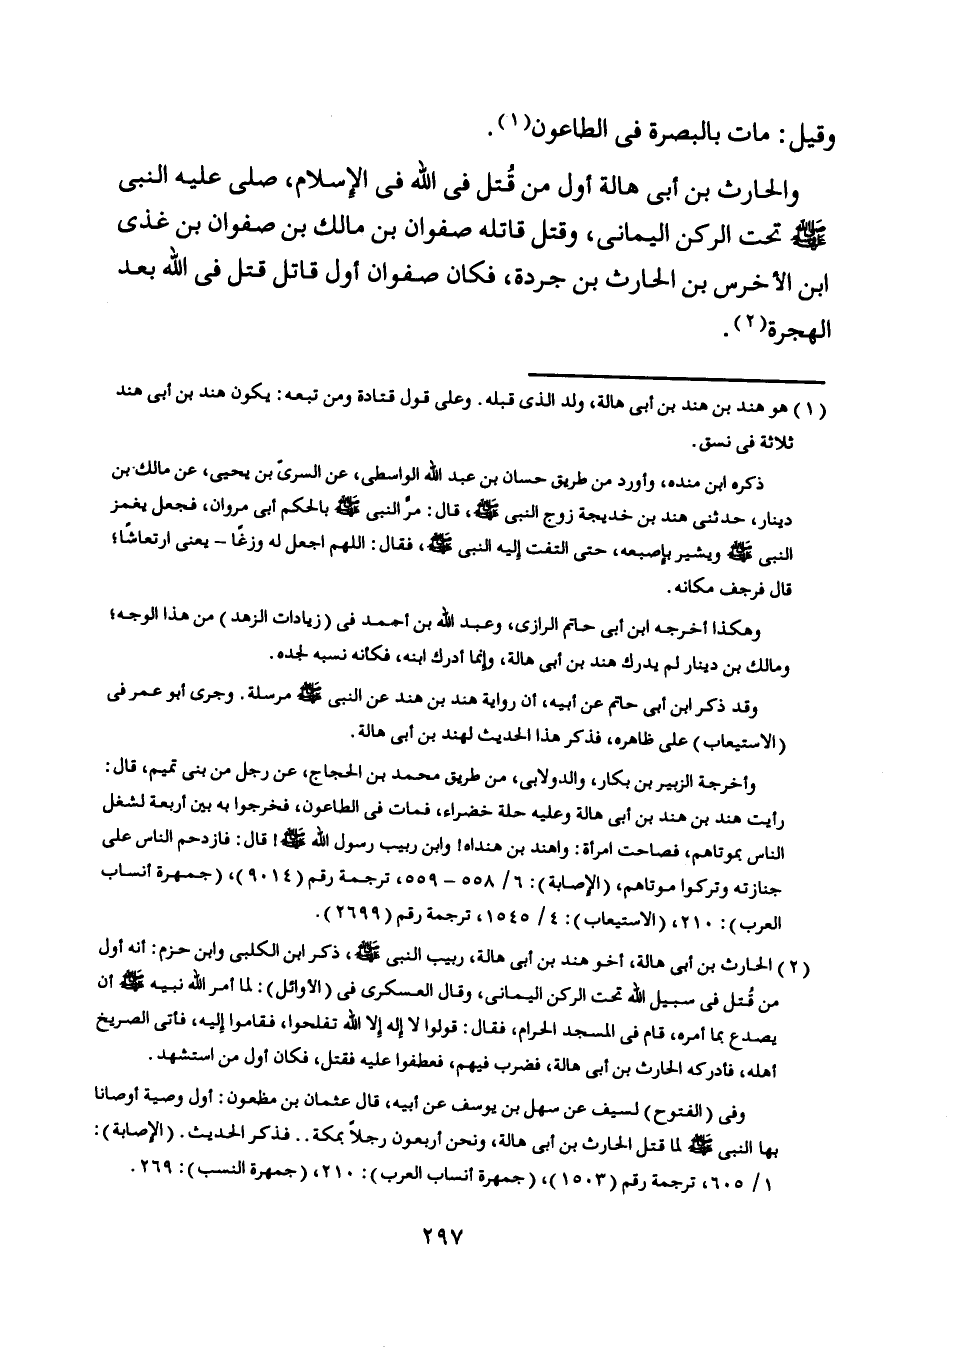 وقيل: مات بالبصرة فى الطاعون(١).
والحارث بن أبى هالة أول من قُتل فى الله فى الإسلام، صلى عليه النبى
ﷺ تحت الركن اليمانى، وقتل قاتله صفوان بن مالك بن صفوان بن غذى
ابن الأخرس بن الحارث بن جردة، فكان صفوان أول قاتل قتل فى الله بعد
الهجرة(٢).
(١) هو هند بن هند بن أبى هالة، ولد الذى قبله. وعلى قول قتادة ومن تبعه: يكون هند بن أبى هند
ثلاثة فى نسق.
ذكره ابن منده، وأورد من طريق حسان بن عبد الله الواسطى، عن السرىّ بن يحيى، عن مالك بن
دينار، حدثنى هند بن خديجة زوج النبى ﷺ، قال: مرَّ النبى ﷺ بالحكم أبى مروان، فجعل يغمز
النبى ﷺ ويشير بإصبعه، حتى التفت إليه النبى ﷺ، فقال: اللهم اجعل له وزغًا - يعنى ارتعاشًا؛
قال فرجف مكانه.
وهكذا أخرجه ابن أبى حاتم الرازى، وعبد الله بن أحمد فى (زيادات الزهد) من هذا الوجه؛
ومالك بن دينار لم يدرك هند بن أبى هالة، وإنما أدرك ابنه، فكأنه نسبه لجده.
وقد ذكر ابن أبى حاتم عن أبيه، أن رواية هند بن هند عن النبى ﷺ مرسلة. وجرى أبو عمر فى
(الاستيعاب) على ظاهره، فذكر هذا الحديث لهند بن أبى هالة.
وأخرجة الزبير بن بكار، والدولابى، من طريق محمد بن الحجاج، عن رجل من بنى تميم، قال:
رأيت هند بن هند بن أبى هالة وعليه حلة خضراء، فمات فى الطاعون، فخرجوا به بين أربعة لشغل
الناس بموتاهم، فصاحت امرأة: واهند بن هنداه! وابن ربيب رسول الله ﷺ! قال: فازدحم الناس على
جنازته وتركوا موتاهم، (الإصابة): ٦/ ٥٥٨ - ٥٥٩، ترجمة رقم (٩٠١٤)، (جمهرة أنساب
العرب): ٢١٠، (الاستيعاب): ٤/ ١٥٤٥، ترجمة رقم (٢٦٩٩).
(٢) الحارث بن أبى هالة، أخو هند بن أبى هالة، ربيب النبى ﷺ، ذكر ابن الكلبى وابن حزم: أنه أول
من قُتل فى سبيل الله تحت الركن اليمانى، وقال العسكرى فى (الأوائل): لما أمر الله نبيه ﷺ أن
يصدع بما أمره، قام فى المسجد الحرام، فقال: قولوا لا إله إلا الله تفلحوا، فقاموا إليه، فأتى الصريخ
أهله، فأدركه الحارث بن أبى هالة، فضرب فيهم، فعطفوا عليه فقتل، فكان أول من استشهد.
وفى (الفتوح) لسيف عن سهل بن يوسف عن أبيه، قال عثمان بن مظعون: أول وصية أوصانا
بها النبى ﷺ لما قتل الحارث بن أبى هالة، ونحن أربعون رجلاً بمكة.. فذكر الحديث. (الإصابة):
١/ ٦٠٥، ترجمة رقم (١٥٠٣)، (جمهرة أنساب العرب): ٢١٠، (جمهرة النسب): ٢٦٩.
٢٩٧